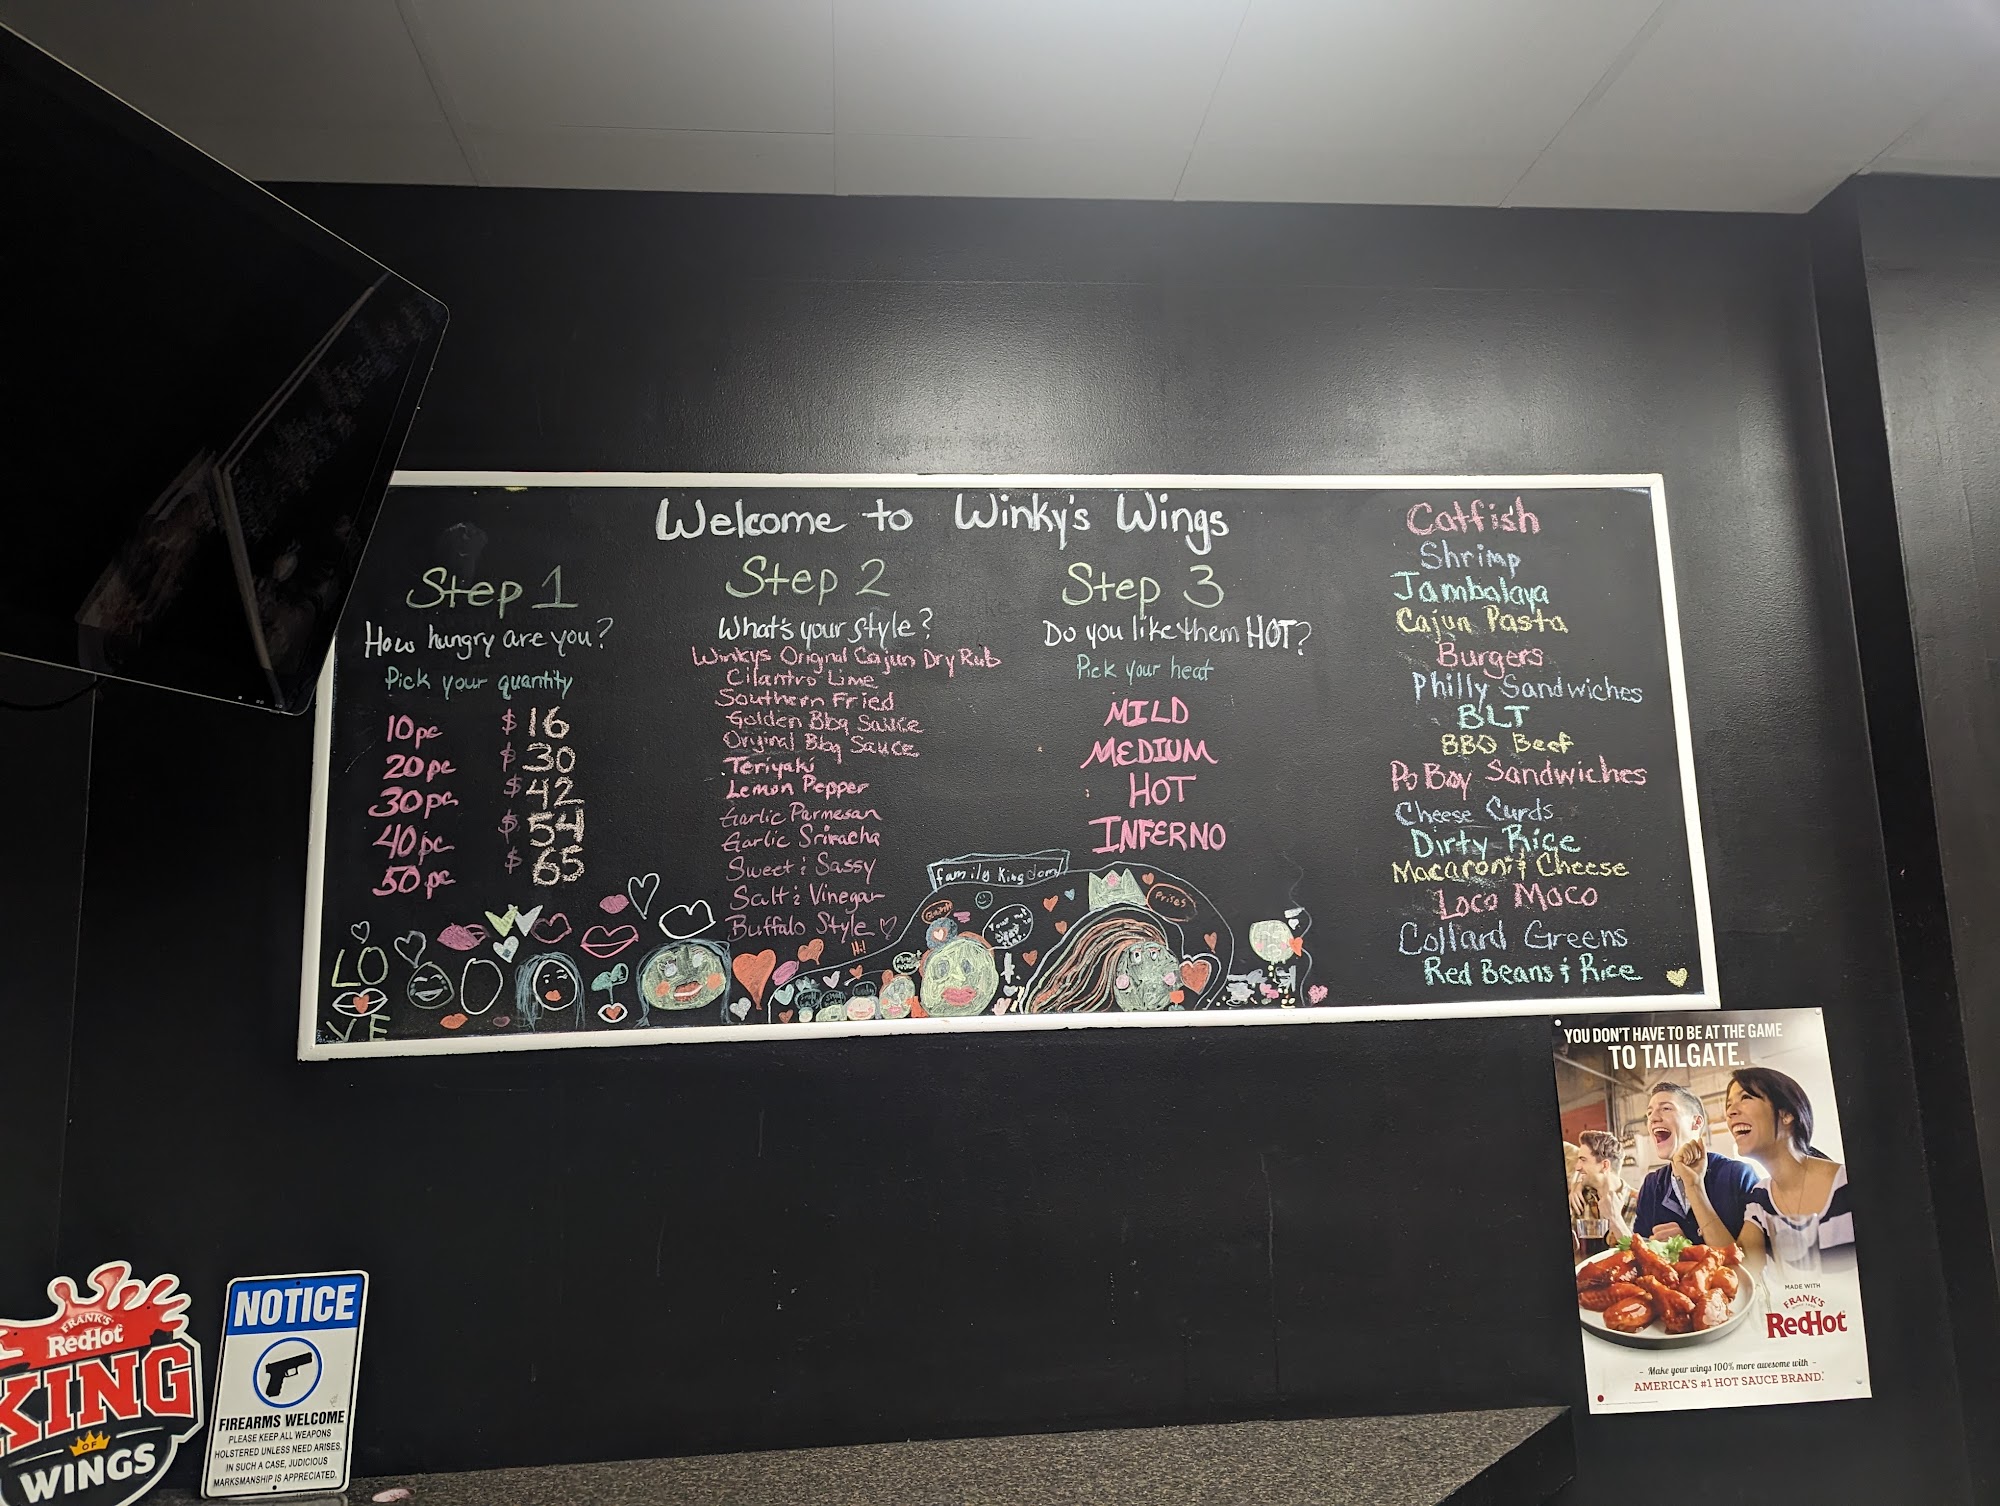 Welcome to Winky's Wings
Step 1
How hungry are you?
Pick your quantity
10pc $16
20pc $30
30pc $42
40pc $54
50pc $65
Step 2
What's your style?
Winkys Original Cajun Dry Rub
Cilantro Lime
Southern Fried
Golden Bbq Sauce
Original Bbq Sauce
Teriyaki
Lemon Pepper
Garlic Parmesan
Garlic Sriracha
Sweet & Sassy
Salt & Vinegar
Buffalo Style
Step 3
Do you like them HOT?
Pick your heat
MILD
MEDIUM
HOT
INFERNO
Catfish
Shrimp
Jambalaya
Cajun Pasta
Burgers
Philly Sandwiches
BLT
BBQ Beef
Po Boy Sandwiches
Cheese Curds
Dirty Rice
Macaroni & Cheese
Loco Moco
Collard Greens
Red Beans & Rice
LO
VE
family Kingdom
Hi!
Prises
YOU DON'T HAVE TO BE AT THE GAME
TO TAILGATE.
MADE WITH
FRANK'S
RedHot
- Make your wings 100% more awesome with -
AMERICA'S #1 HOT SAUCE BRAND.
FRANK'S
RedHot
KING
OF
WINGS
NOTICE
FIREARMS WELCOME
PLEASE KEEP ALL WEAPONS
HOLSTERED UNLESS NEED ARISES.
IN SUCH A CASE, JUDICIOUS
MARKSMANSHIP IS APPRECIATED.